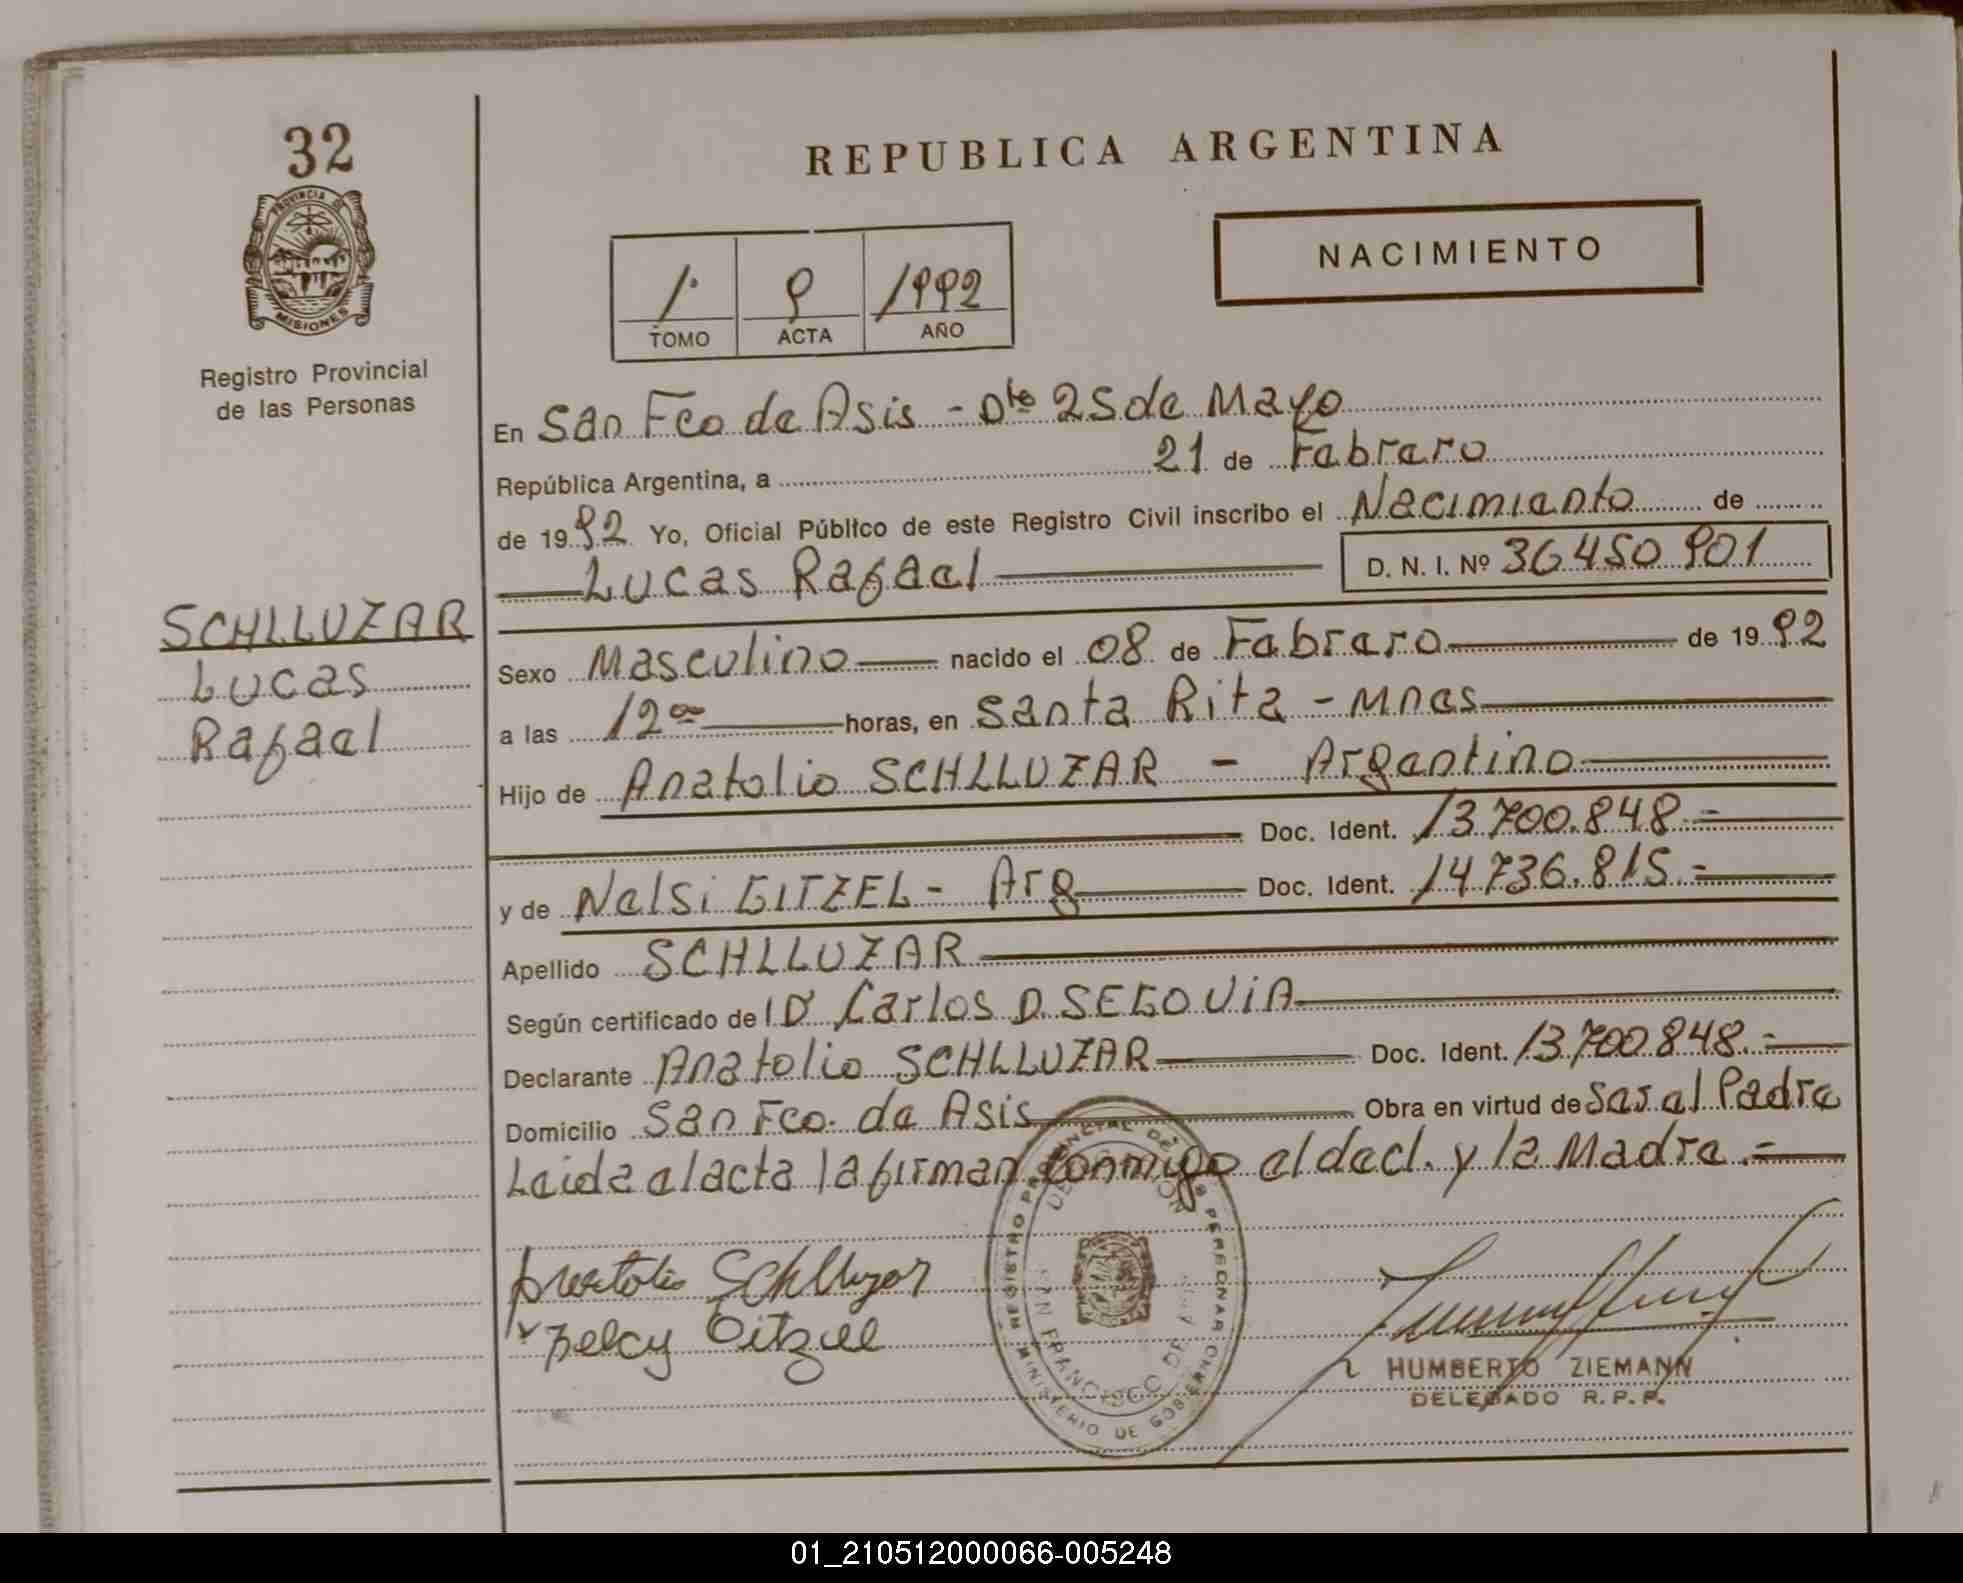 32
PROVINCIA DE
MISIONES
Registro Provincial
de las Personas
SCHLLUZAR
Lucas
Rafael
REPUBLICA ARGENTINA
NACIMIENTO
1º 9 1992
TOMO ACTA AÑO
En San Fco de Asis - Dto 25 de Mayo
República Argentina, a 21 de Febrero
de 1992 Yo, Oficial Público de este Registro Civil inscribo el Nacimiento de
Lucas Rafael D. N. I. Nº 36450901
Sexo Masculino nacido el 08 de Febrero de 1992
a las 12 horas, en Santa Rita - Mnes
Hijo de Anatolio SCHLLUZAR - Argentino
Doc. Ident. 13.700.848.=
y de Nelsi GITZEL - Arg Doc. Ident. 14.736.815.=
Apellido SCHLLUZAR
Según certificado de Carlos D. SEGOVIA
Declarante Anatolio SCHLLUZAR Doc. Ident. 13.700.848.=
Domicilio San Fco. de Asis Obra en virtud de Ser el Padre
Leida el acta la firman conmigo el decl. y la Madre.=
Schlluzar
HUMBERTO ZIEMANN
DELEGADO R.P.P.
REGISTRO PROVINCIAL DE LAS PERSONAS
DELEGACION
SAN FRANCISCO DE ASIS
MINISTERIO DE GOBIERNO
01_210512000066-005248